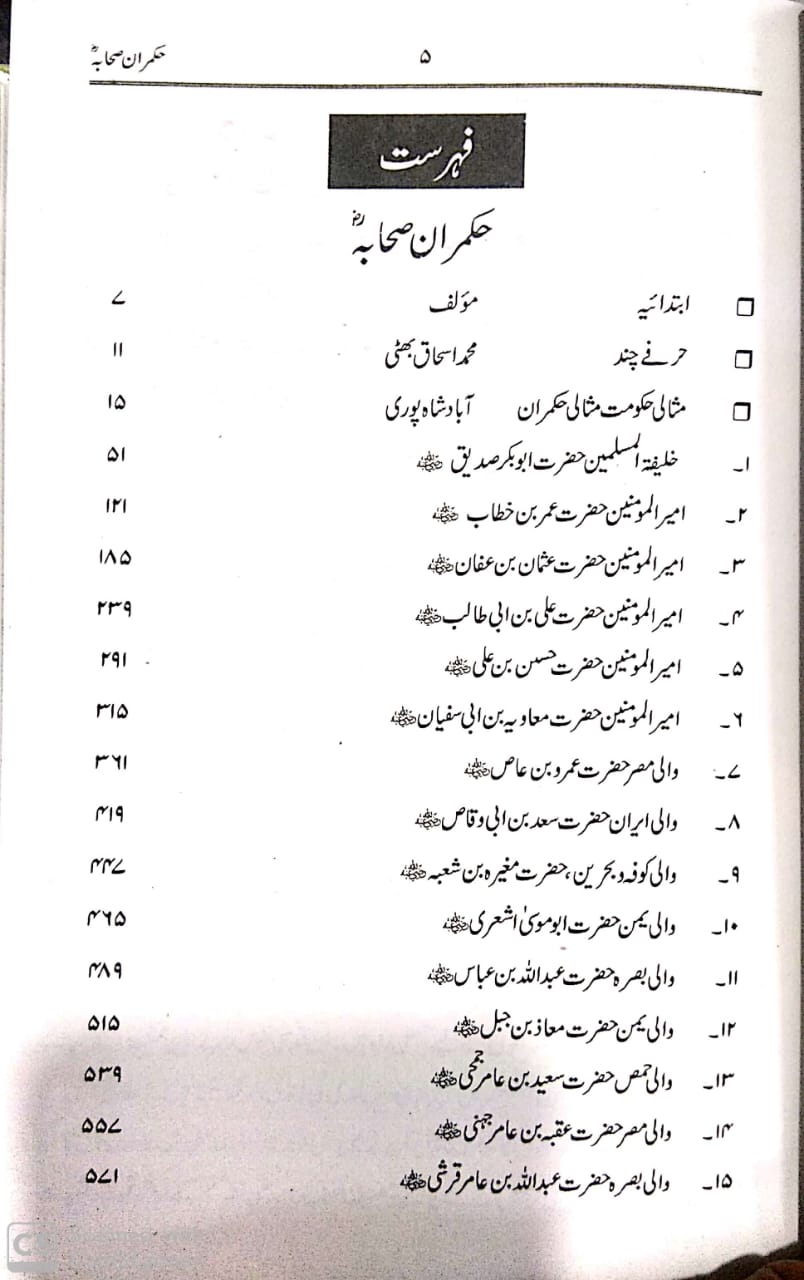 حکمران صحابہؓ ۵
فہرست
حکمران صحابہؓ
ابتدائیہ مؤلف ۷
حرفے چند محمد اسحاق بھٹی ۱۱
مثالی حکومت مثالی حکمران آباد شاہ پوری ۱۵
۱۔ خلیفۃ المسلمین حضرت ابوبکر صدیق رضی اللہ عنہ ۵۱
۲۔ امیر المومنین حضرت عمر بن خطاب رضی اللہ عنہ ۱۲۱
۳۔ امیر المومنین حضرت عثمان بن عفان رضی اللہ عنہ ۱۸۵
۴۔ امیر المومنین حضرت علی بن ابی طالب رضی اللہ عنہ ۲۳۹
۵۔ امیر المومنین حضرت حسن بن علی رضی اللہ عنہ ۲۹۱
۶۔ امیر المومنین حضرت معاویہ بن ابی سفیان رضی اللہ عنہ ۳۱۵
۷۔ والی مصر حضرت عمرو بن عاص رضی اللہ عنہ ۳۶۱
۸۔ والی ایران حضرت سعد بن ابی وقاص رضی اللہ عنہ ۴۱۹
۹۔ والی کوفہ و بحرین، حضرت مغیرہ بن شعبہ رضی اللہ عنہ ۴۴۷
۱۰۔ والی یمن حضرت ابو موسیٰ اشعری رضی اللہ عنہ ۴۶۵
۱۱۔ والی بصرہ حضرت عبداللہ بن عباس رضی اللہ عنہ ۴۸۹
۱۲۔ والی یمن حضرت معاذ بن جبل رضی اللہ عنہ ۵۱۵
۱۳۔ والی حمص حضرت سعید بن عامر جمحی رضی اللہ عنہ ۵۳۹
۱۴۔ والی مصر حضرت عقبہ بن عامر جہنی رضی اللہ عنہ ۵۵۷
۱۵۔ والی بصرہ حضرت عبداللہ بن عامر قرشی رضی اللہ عنہ ۵۷۱